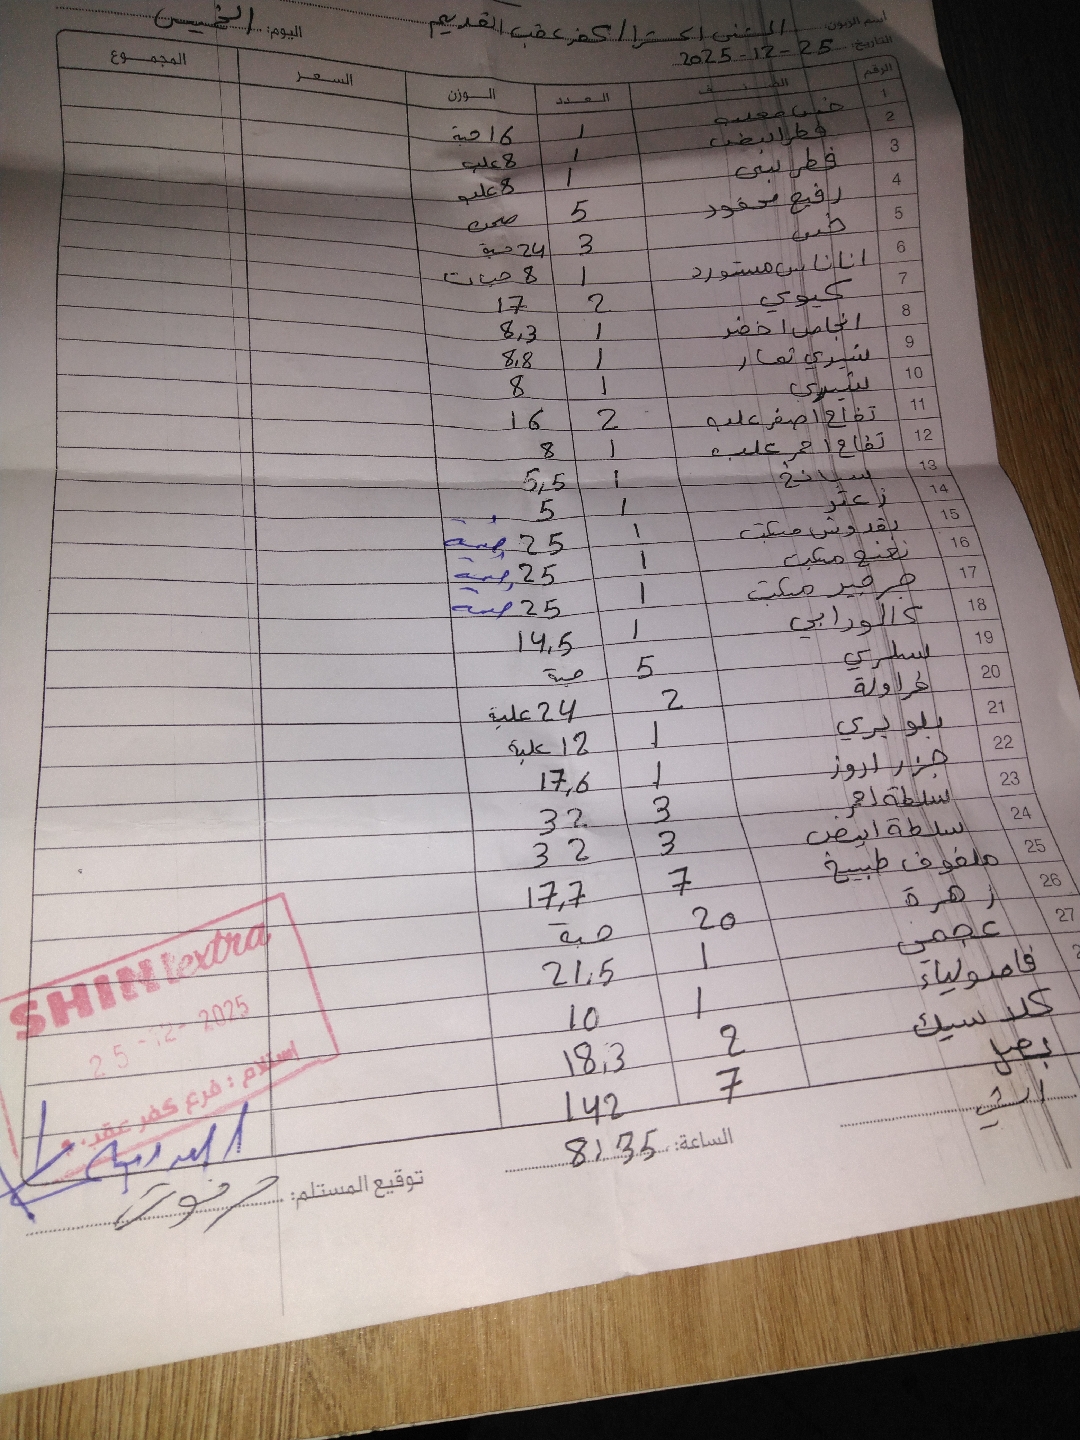 اسم الزبون: الشني اكسترا / كفر عقب القديم اليوم: الخميس
التاريخ: 25-12-2025
الرقم الصنف العدد الوزن السعر المجموع
1 خس معلب 1 16 حبة
2 فطر ابيض 1 8 علب
3 فطر بني 1 8 علب
4 رفيع محفود 5 صحن
5 خس 3 24 حبة
6 اناناس مستورد 1 8 حبات
7 كيوي 2 17
8 انجاص اخضر 1 8,3
9 شيري تمار 1 8,8
10 شيري 1 8
11 تفاح اصفر علب 2 16
12 تفاح احمر علب 1 8
13 سبانخ 1 5,5
14 زعتر 1 5
15 بقدونس مكبت 1 25 ضمة
16 نعنع مكبت 1 25 ضمة
17 جرجير مكبت 1 25 ضمة
18 كالورابي 1 14,5
19 سلري 5 حبة
20 فراولة 2 24 علبة
21 بلو بيري 1 12 علبة
22 جزر اروز 1 17,6
23 سلطة احمر 3 32
24 سلطة ابيض 3 32
25 ملفوف طبيخ 7 17,7
26 زهرة 20 حبة
27 عجمي 1 21,5
فاصولياء 1 10
كلاسيك 2 18,3
بصل 7 142
الساعة: 8:35
توقيع المستلم:
SHINI extra
25-12-2025
استلام : فرع كفر عقب